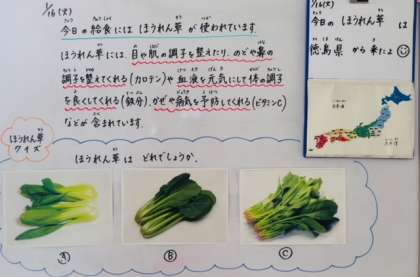 1/16(火)
今日の給食には ほうれん草 が 使われています。
ほうれん草には、目や肌の調子を整えたり、のどや鼻の
調子を整えてくれる(カロテン)や 血液を元気にして体の調子
を良くしてくれる(鉄分)、かぜや病気を予防してくれる(ビタミンC)
などが 含まれています。
1/16(火)
今日の ほうれん草 は
徳島県 から来たよ
ほうれん草
クイズ
ほうれん草は どれでしょうか。
A
B
C